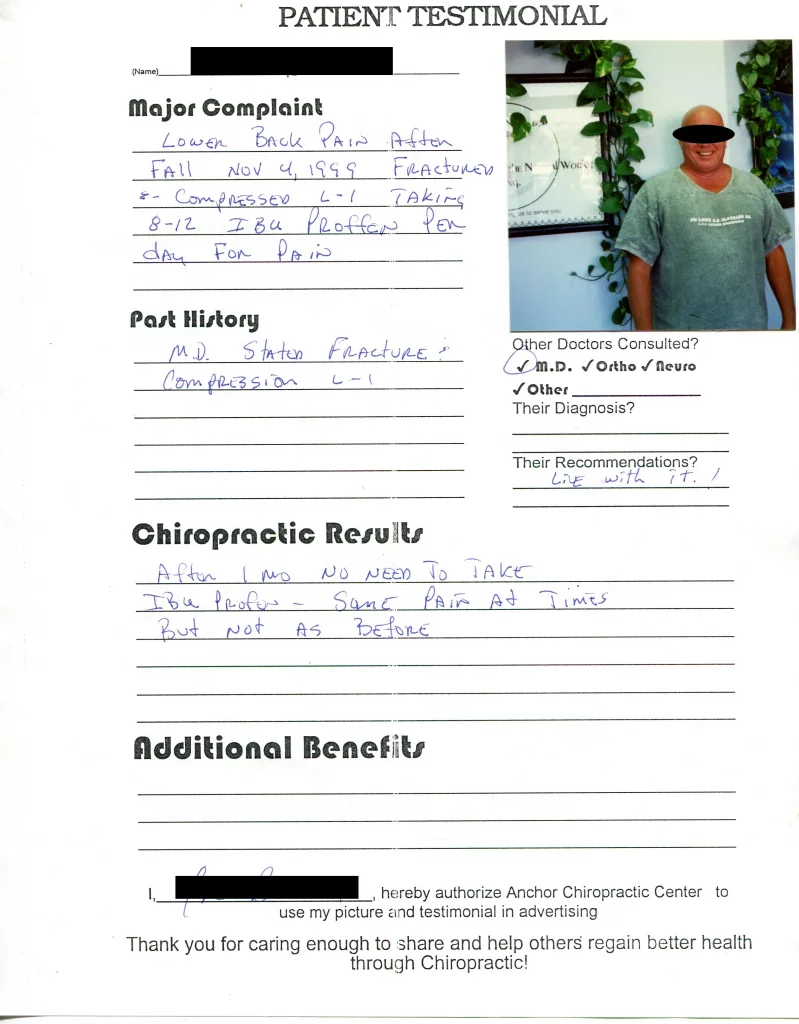 PATIENT TESTIMONIAL
(Name)
Major Complaint
LOWER BACK PAIN After
FAll NOV 4, 1999 FRACTURED
& - COMPRESSED L-1 TAKING
8-12 IBU PROffEN PER
dAy FOR PAIN
Past History
M.D. StAtED FRACtURE &
COMPRESSION L-1
Other Doctors Consulted?
✓M.D. ✓Ortho ✓Neuro
✓Other
Their Diagnosis?
Their Recommendations?
LIVE with IT. !
Chiropractic Results
AftER 1 MO NO NEED TO TAKE
IBU PROfEN - SOME PAIN At TIMES
But NOt AS BEfORE
Additional Benefits
I, , hereby authorize Anchor Chiropractic Center to
use my picture and testimonial in advertising
Thank you for caring enough to share and help others regain better health
through Chiropractic!